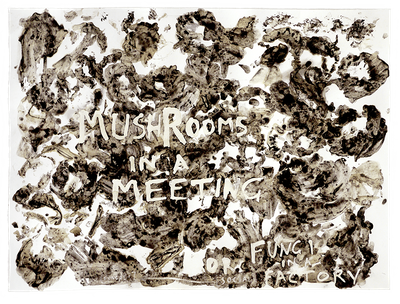 MUSHROOMS
IN A
MEETING
OR FUNGI
IN A
FACTORY